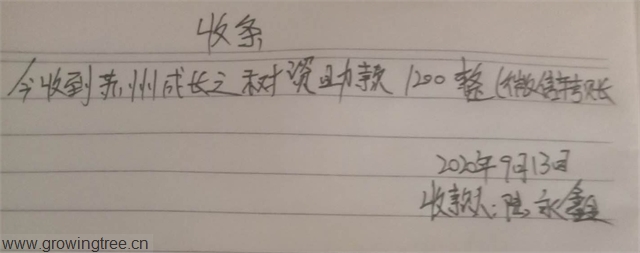 收条
今收到苏州成长之树资助款1200整(微信转账
2020年9月13日
收款人:陆永鑫
www.growingtree.cn